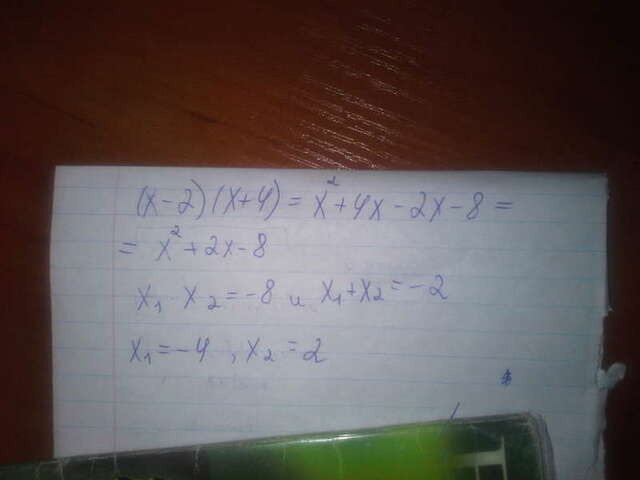 (x-2)(x+4) = x²+4x-2x-8 =
= x²+2x-8
x₁ · x₂ = -8 и x₁+x₂ = -2
x₁ = -4 , x₂ = 2